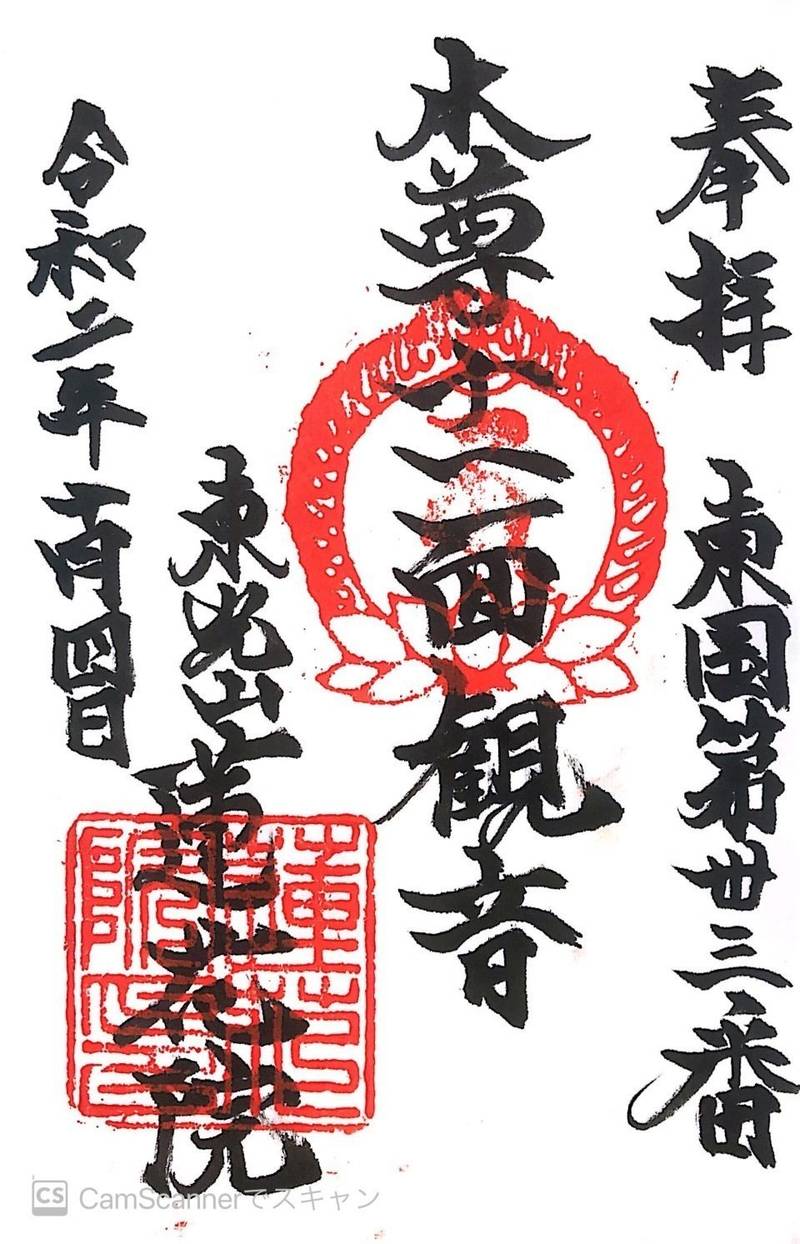 奉拝 東国第丗三番
本尊十一面観音
東光山蓮花院
令和二年十一月四日
蓮花院印
CS CamScannerでスキャン